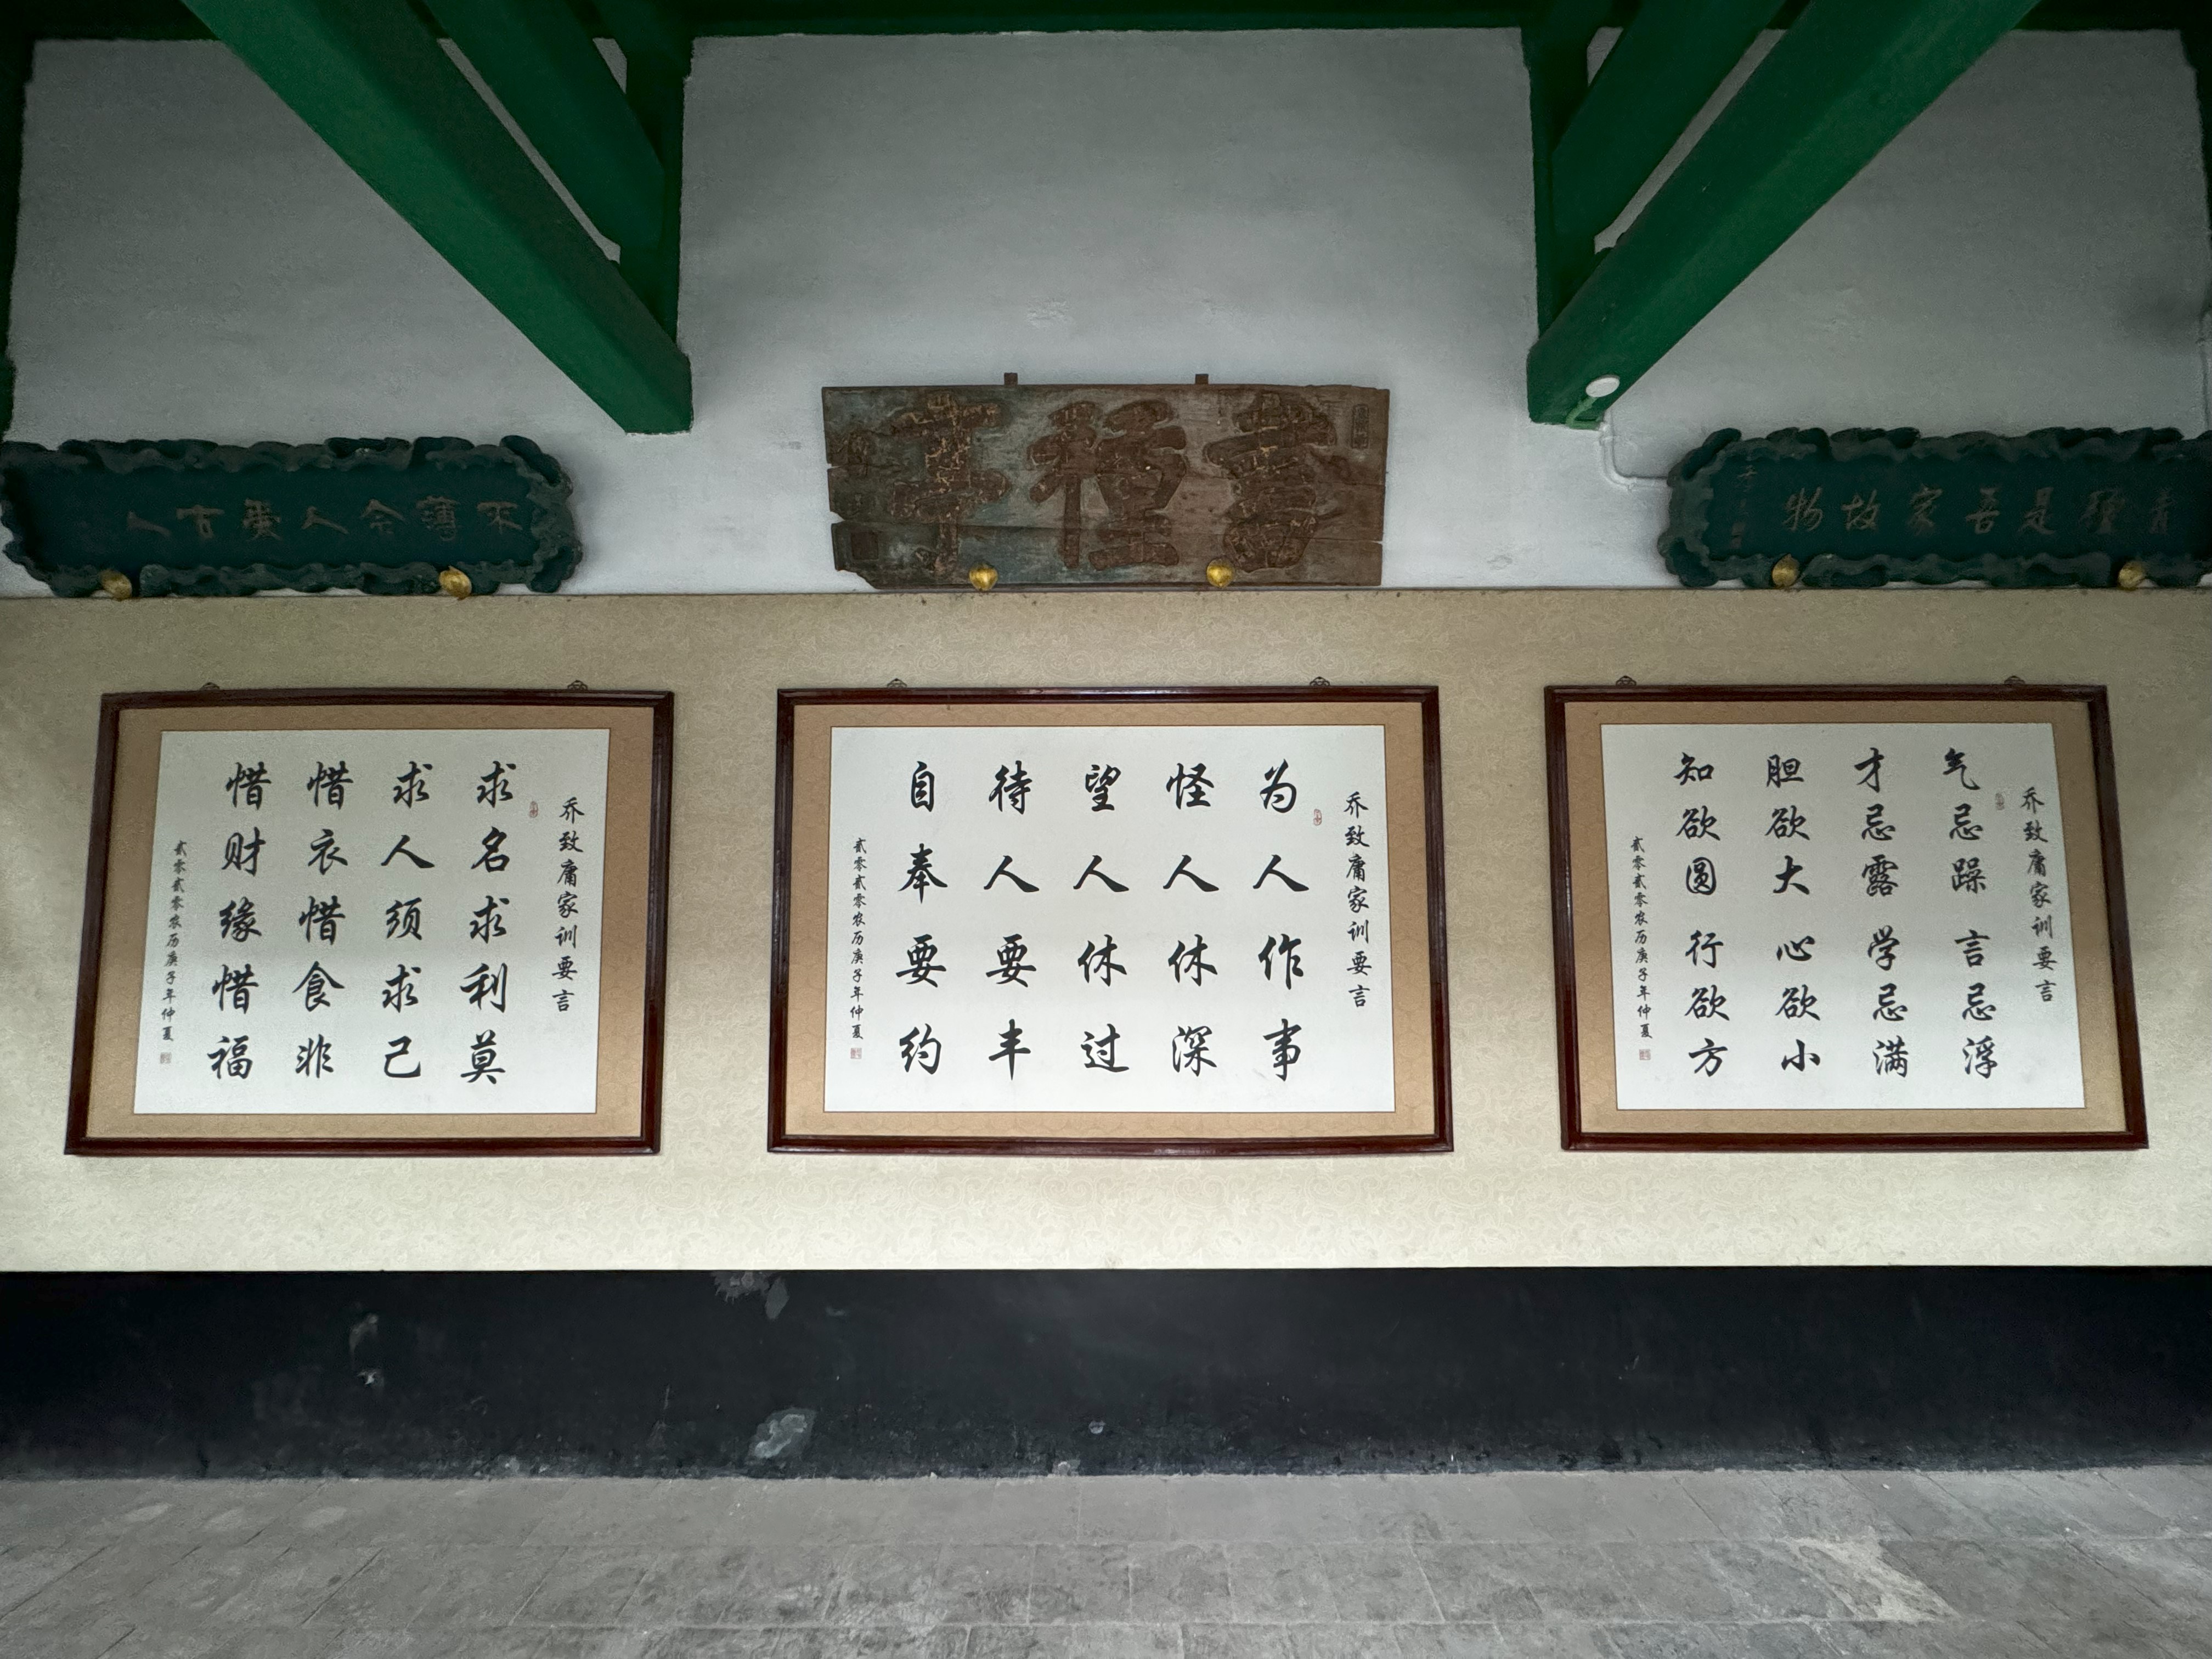 青氈是吾家故物
書種
不薄今人愛古人
乔致庸家训要言
气忌躁言忌浮
才忌露学忌满
胆欲大心欲小
知欲圆行欲方
贰零贰零农历庚子年仲夏
乔致庸家训要言
为人作事
怪人休深
望人休过
待人要丰
自奉要约
贰零贰零农历庚子年仲夏
乔致庸家训要言
求名求利莫
求人须求己
惜衣惜食非
惜财缘惜福
贰零贰零农历庚子年仲夏